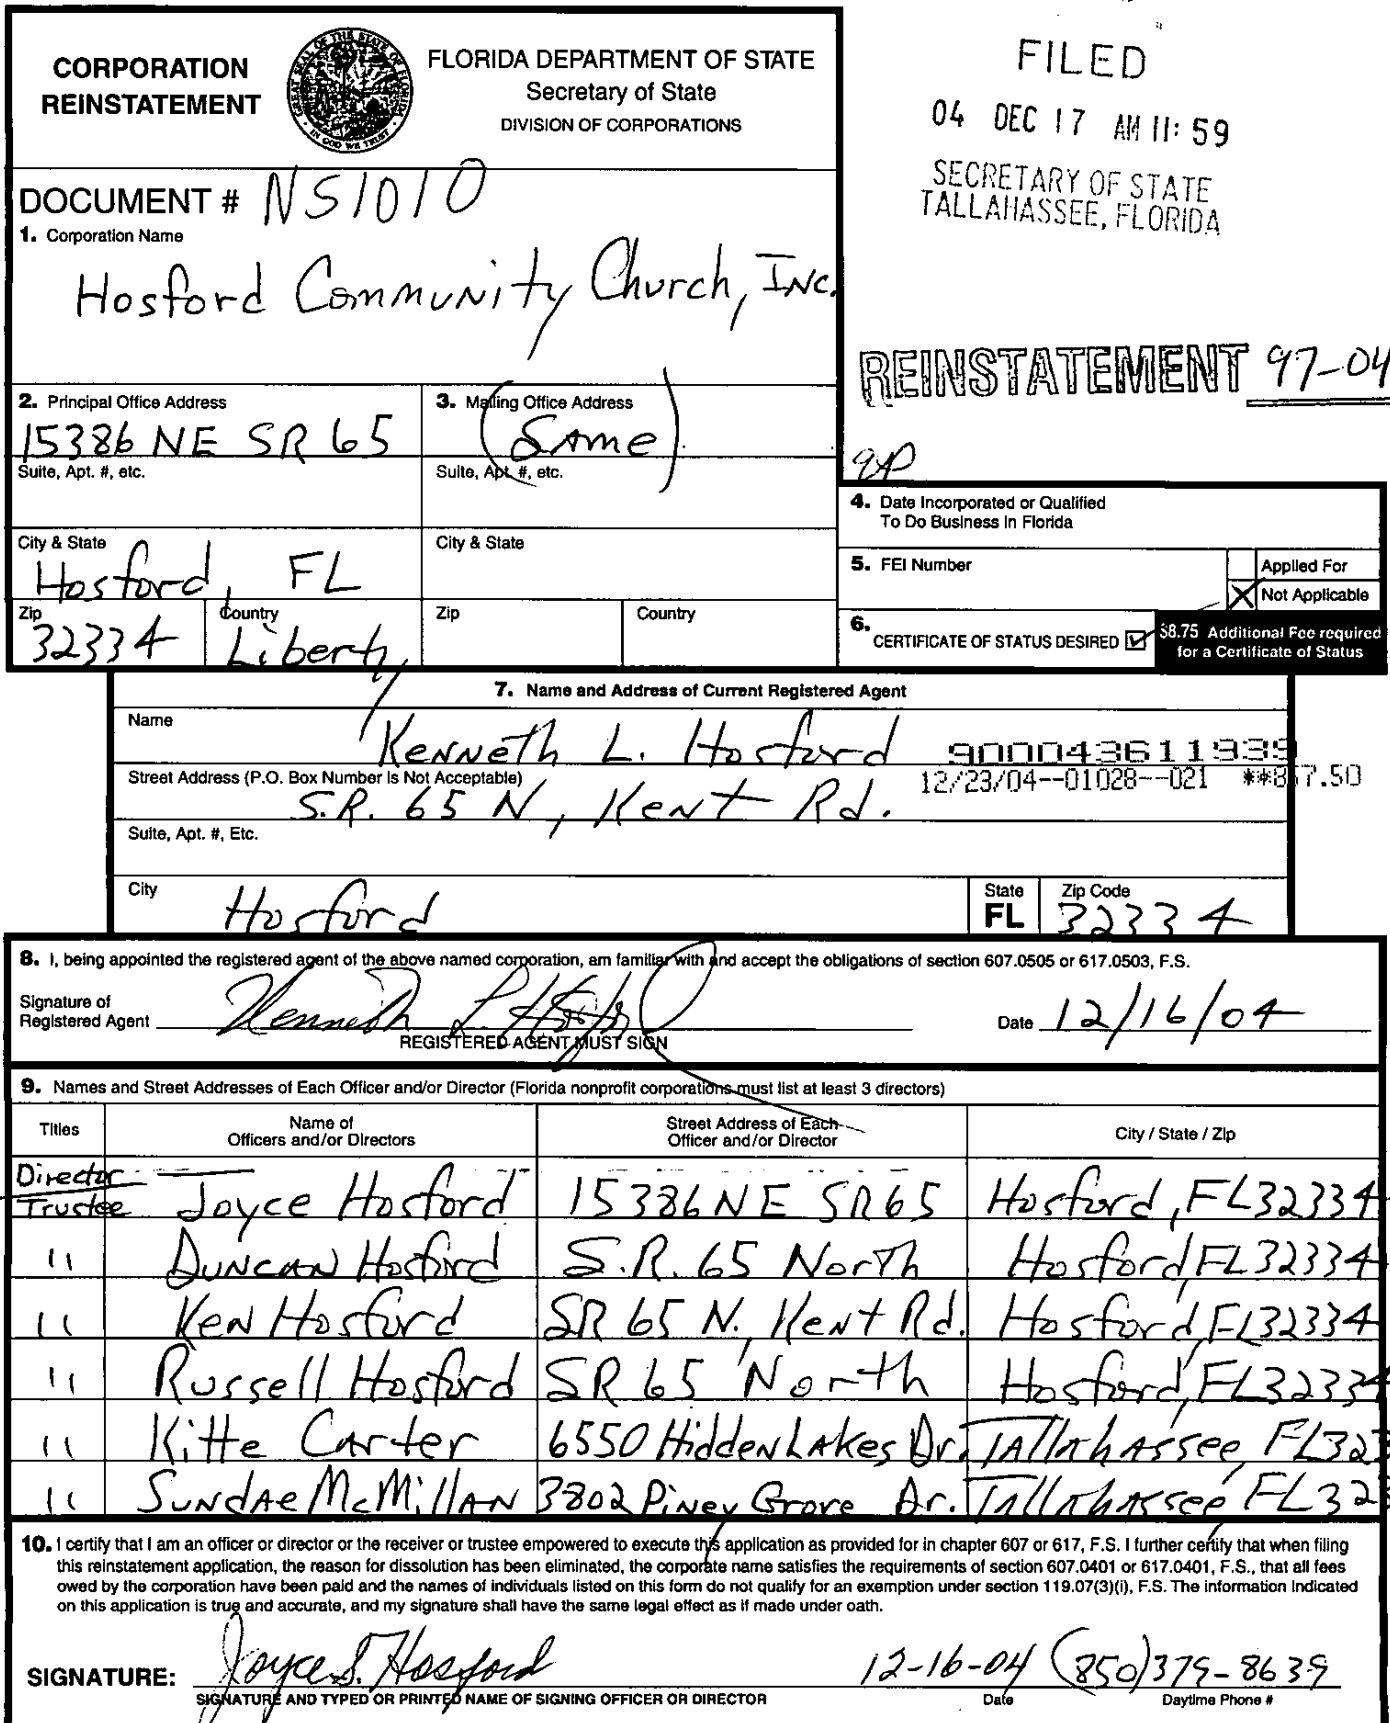 CORPORATION
REINSTATEMENT
GREAT SEAL OF THE STATE OF FLORIDA
IN GOD WE TRUST
FLORIDA DEPARTMENT OF STATE
Secretary of State
DIVISION OF CORPORATIONS
FILED
04 DEC 17 AM 11:59
SECRETARY OF STATE
TALLAHASSEE, FLORIDA
DOCUMENT # N51010
1. Corporation Name
Hosford Community Church, Inc.
REINSTATEMENT 97-04
2. Principal Office Address
15386 NE SR 65
3. Mailing Office Address
(Same)
Suite, Apt. #, etc.
Suite, Apt. #, etc.
City & State
Hosford, FL
City & State
Zip
32334
Country
Liberty
Zip
Country
4. Date Incorporated or Qualified
To Do Business in Florida
5. FEI Number
Applied For
X Not Applicable
6. CERTIFICATE OF STATUS DESIRED
$8.75 Additional Fee required
for a Certificate of Status
7. Name and Address of Current Registered Agent
Name
Kenneth L. Hosford
900043611939
Street Address (P.O. Box Number Is Not Acceptable)
12/23/04--01028--021 **857.50
S.R. 65 N, Kent Rd.
Suite, Apt. #, Etc.
City
Hosford
State
FL
Zip Code
32334
8. I, being appointed the registered agent of the above named corporation, am familiar with and accept the obligations of section 607.0505 or 617.0503, F.S.
Signature of
Registered Agent Kenneth L. Hosford
Date 12/16/04
REGISTERED AGENT MUST SIGN
9. Names and Street Addresses of Each Officer and/or Director (Florida nonprofit corporations must list at least 3 directors)
Titles
Name of
Officers and/or Directors
Street Address of Each
Officer and/or Director
City / State / Zip
Director
Trustee Joyce Hosford 15386 NE SR65 Hosford, FL 32334
11 Duncan Hosford S.R. 65 North Hosford, FL 32334
11 Ken Hosford SR 65 N., Kent Rd. Hosford, FL 32334
11 Russell Hosford SR 65 North Hosford, FL 32334
11 Kitte Carter 6550 Hidden Lakes Dr. Tallahassee, FL 323
11 Sundae McMillan 3802 Piney Grove Dr. Tallahassee FL 323
10. I certify that I am an officer or director or the receiver or trustee empowered to execute this application as provided for in chapter 607 or 617, F.S. I further certify that when filing
this reinstatement application, the reason for dissolution has been eliminated, the corporate name satisfies the requirements of section 607.0401 or 617.0401, F.S., that all fees
owed by the corporation have been paid and the names of individuals listed on this form do not qualify for an exemption under section 119.07(3)(i), F.S. The information indicated
on this application is true and accurate, and my signature shall have the same legal effect as if made under oath.
SIGNATURE: Joyce S. Hosford 12-16-04 (850)379-8639
SIGNATURE AND TYPED OR PRINTED NAME OF SIGNING OFFICER OR DIRECTOR
Date
Daytime Phone #